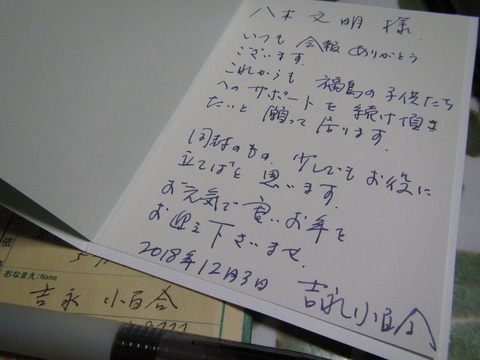 八木文明 様
いつも 会報 ありがとう
ございます.
これからも 福島の子供たち
へのサポートを 続け頂き
たいと 願って居ります.
同封のもの、少しでもお役に
立てばと 思います.
お元気で 寛いお年を
お迎え下さいませ.
2018年12月3日 吉永小百合
おなまえ:Name
吉永 小百合